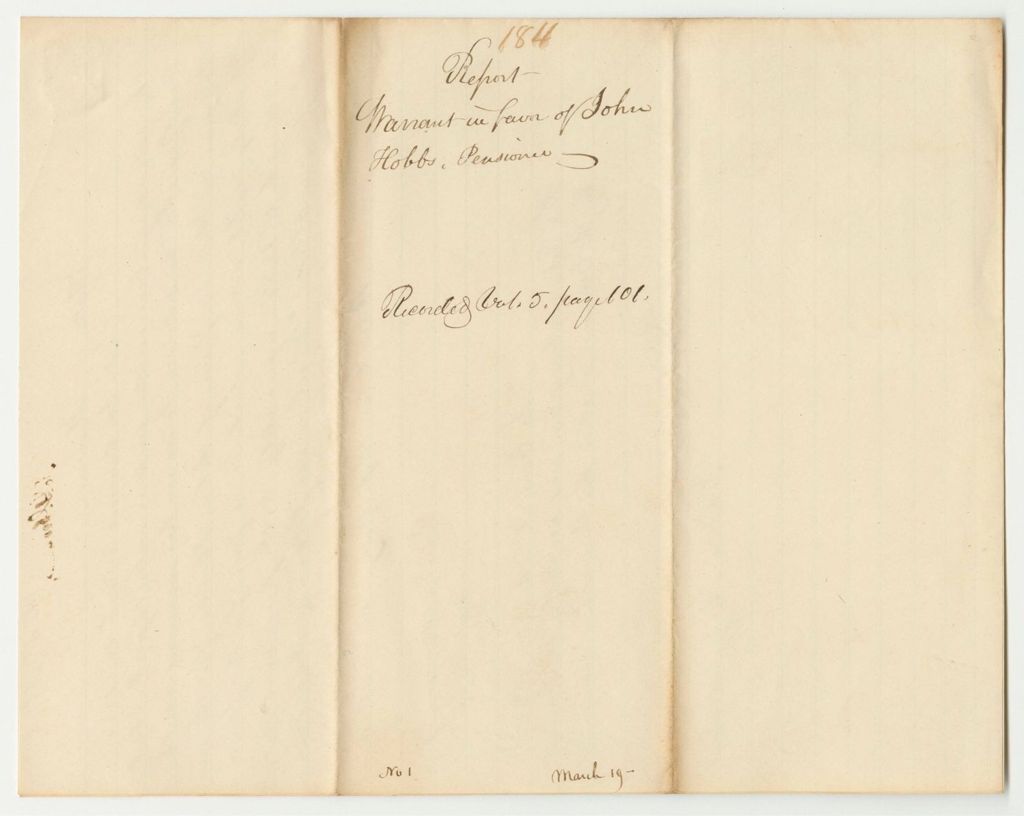 184
Report
Warrant in favor of John
Hobbs, Pensioner
Recorded Vol. 5. page 101.
No 1
March 19